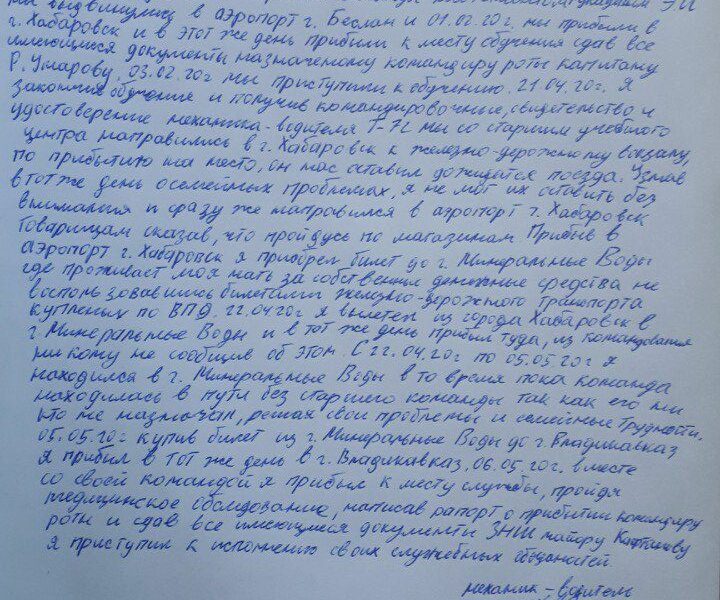 мы выдвинулись в аэропорт г. Беслан и 01.02.20г. мы прибыли в
г. Хабаровск и в этот же день прибыли к месту обучения сдав все
имеющиеся документы назначеному командиру роты капитану
Р. Умарову, 03.02.20г мы приступили к обучению. 21.04.20г. я
закончив обучение и получив командировочные, свидетельство и
удостоверение механика-водителя Т-72 мы со старшим учебного
центра направились в г. Хабаровск к железно-дорожному вокзалу,
по прибытию на место, он нас оставил дожидатся поезда. Узнав
в тот же день о семейных проблемах, я не мог их оставить без
внимания и сразу же направился в аэропорт г. Хабаровск
товарищам сказав, что пройдусь по магазинам. Прибыв в
аэропорт г. Хабаровск я приобрел билет до г. Минеральные Воды
где проживает моя мать за собственные денежные средства не
воспользовавшись билетами железно-дорожного транспорта
купленых по ВПД. 22.04.20г я вылетел из города Хабаровск в
г. Минеральные Воды и в тот же день прибыл туда, из командования
ни кому не сообщив об этом. С 22.04.20г по 05.05.20г я
находился в г. Минеральные Воды в то время пока команда
находилась в пути без старшего команды так как его ни
кто не назначал, решая свои проблемы и семейные трудности.
05.05.20г купив билет из г. Минеральные Воды до г. Владикавказ
я прибыл в тот же день в г. Владикавказ, 06.05.20г. вместе
со своей командой я прибыл к месту службы, пройдя
медицинское обследование, написав рапорт о прибытии командиру
роты и сдав все имеющиеся документы ЗНШ майору
я приступил к исполнению своих служебных обязаностей.
механик-водитель